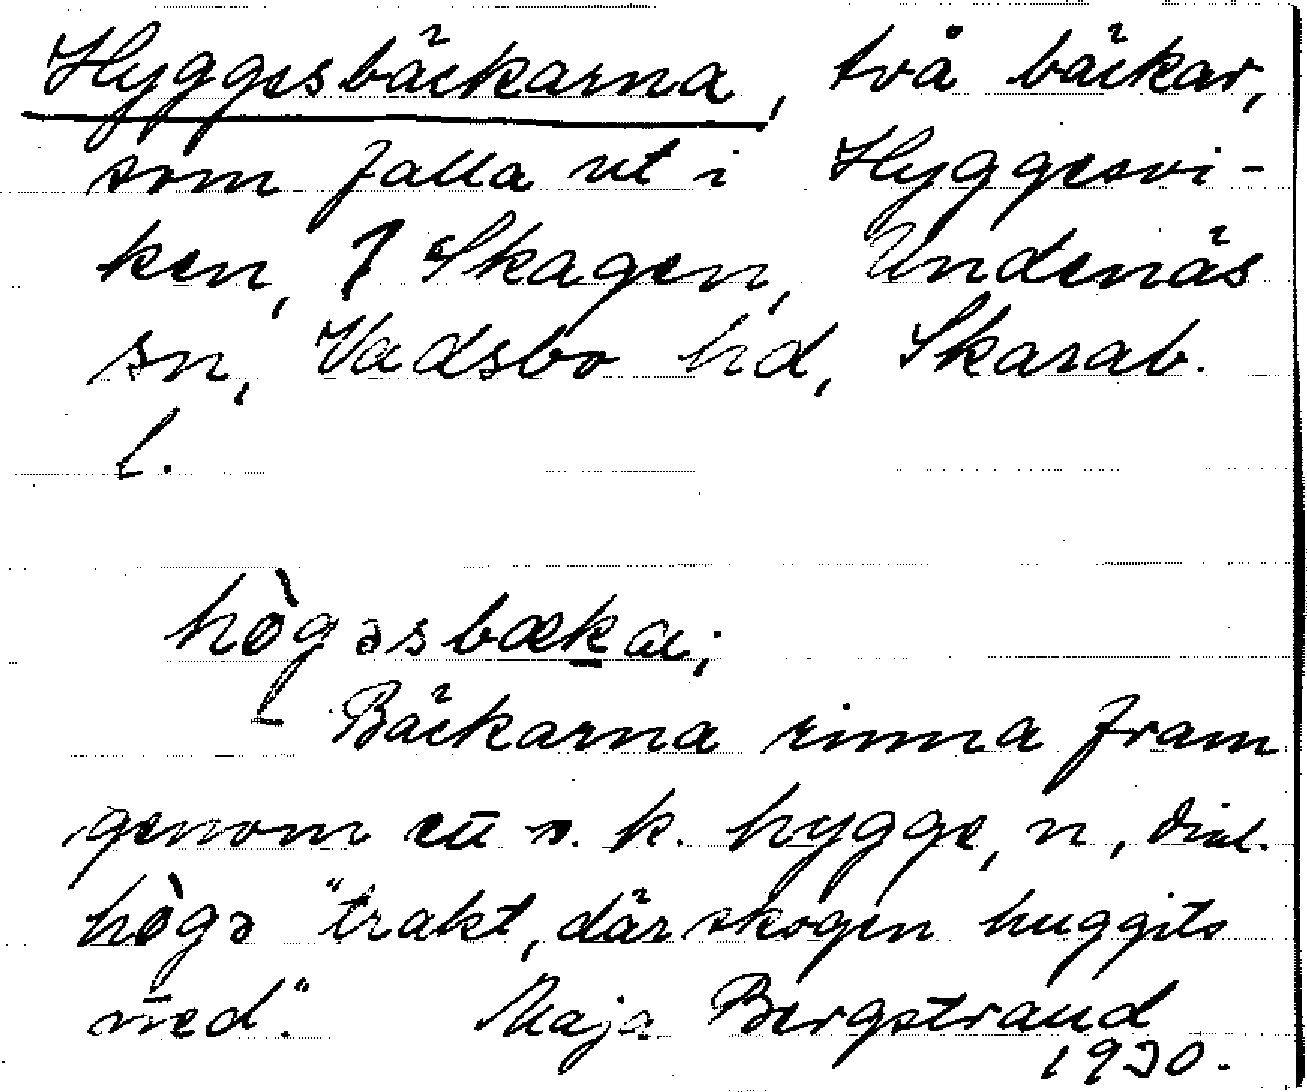 Hyggesbäckarna, två bäckar,
som falla ut i Hyggesvi-
ken, i Skagen, Undenäs
sn, Vadsbo hd, Skarab.
l.
hògəsbækaɹ;
Bäckarna rinna fram
genom ett s. k. hygge, n, dial.
hògə "trakt, där skogen huggits
ned".
Maja Bergstrand
1930.